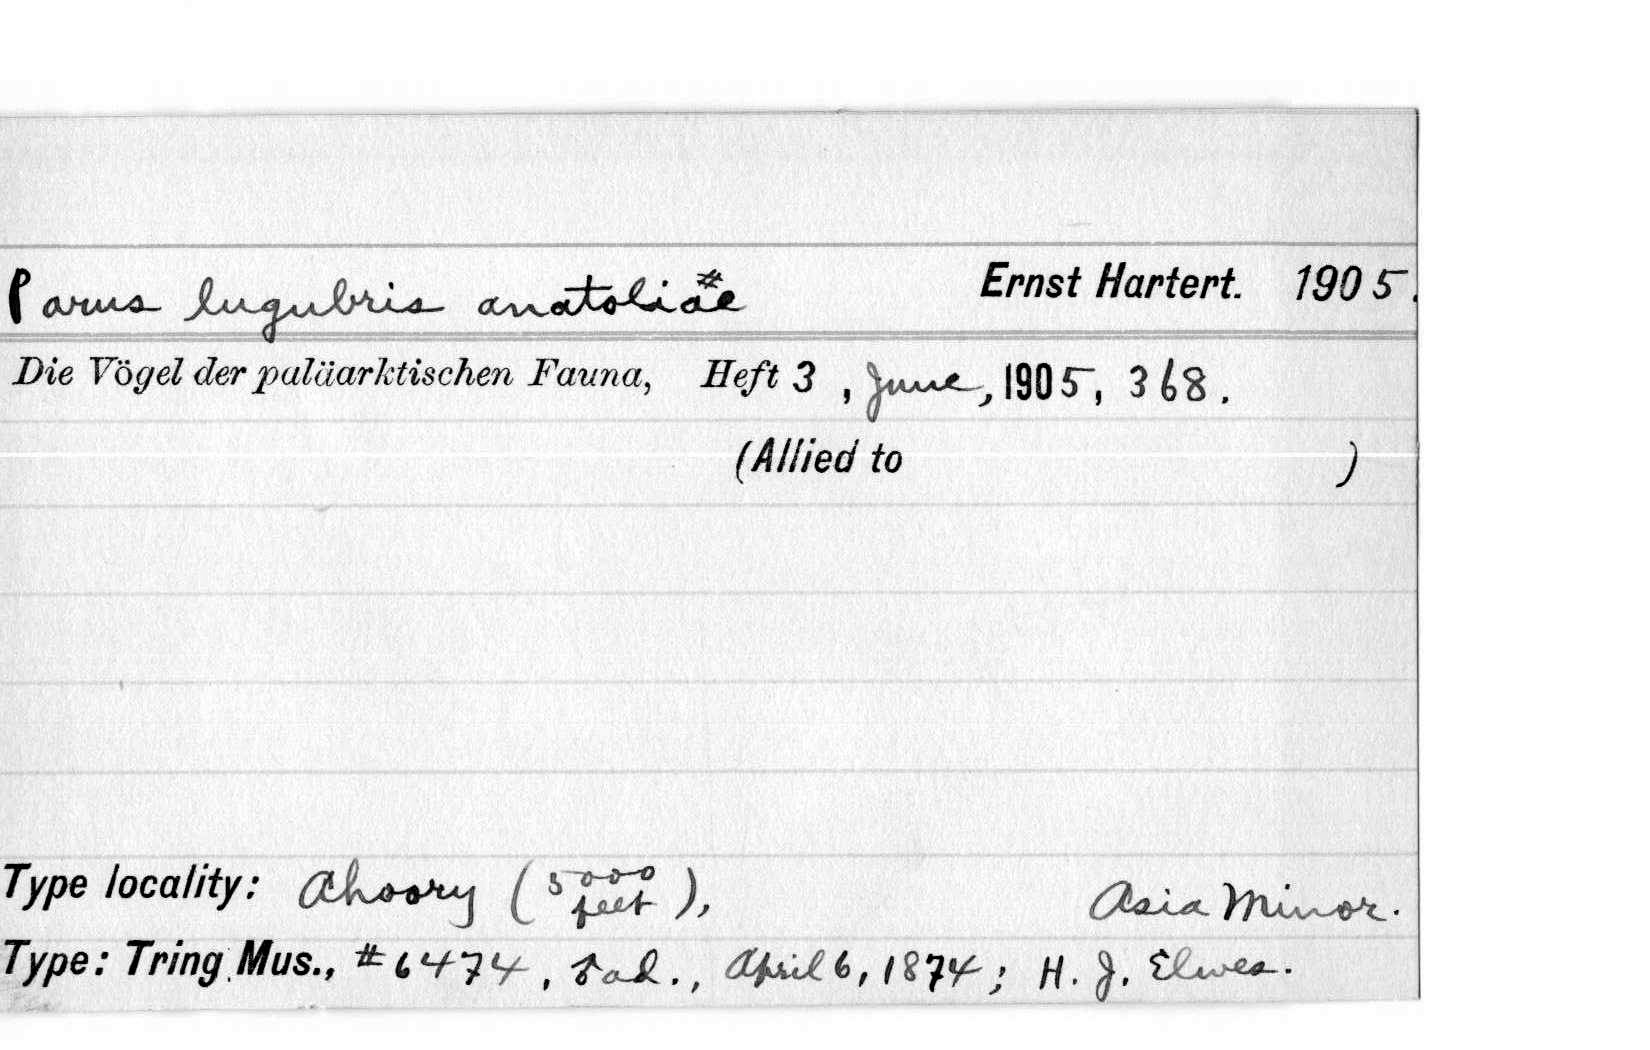 Parus lugubris anatoliae # Ernst Hartert. 1905.
Die Vögel der paläarktischen Fauna, Heft 3, June, 1905, 368.
(Allied to )
Type locality: Ahoory (5000 feet), Asia Minor.
Type: Tring Mus., #6474, ♂ ad., April 6, 1874; H. J. Elwes.